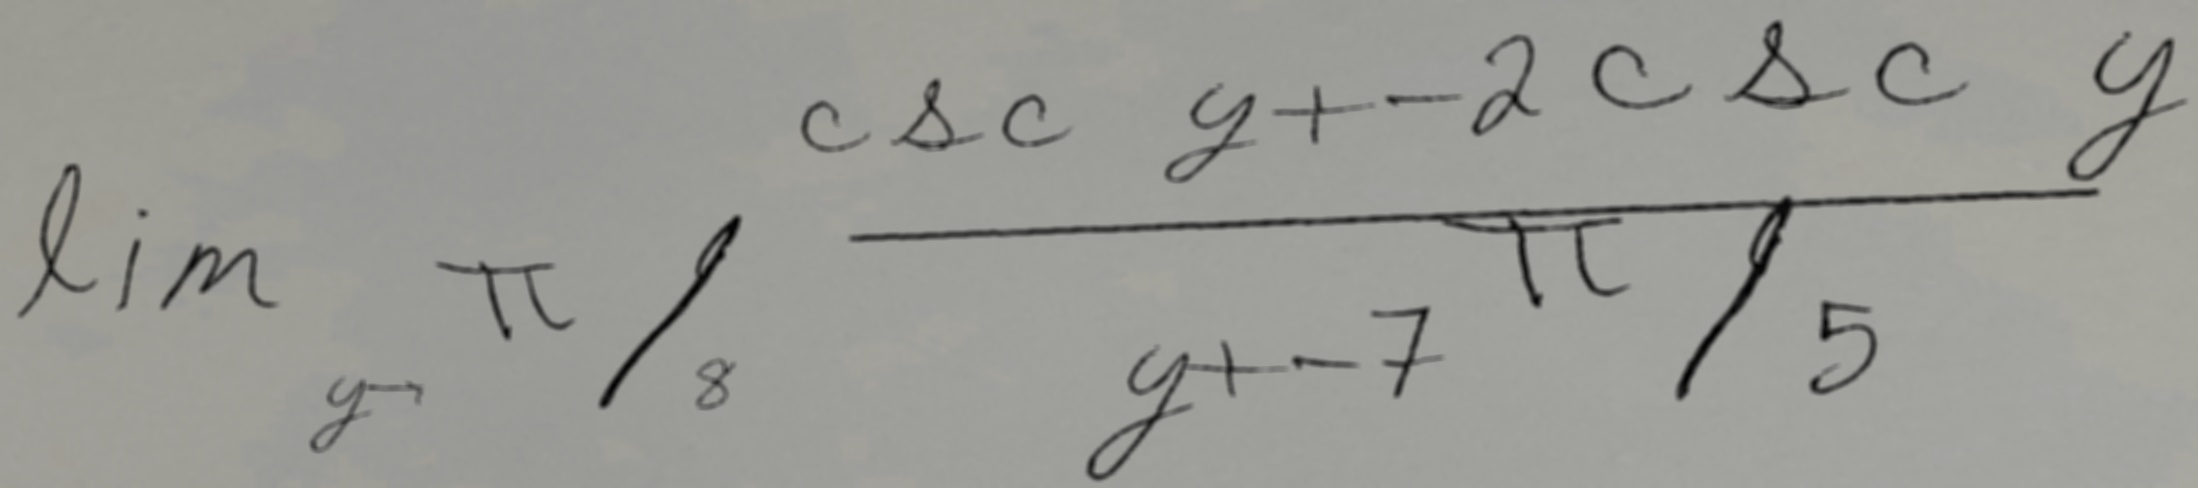 lim y→ π/8 \frac{csc y+-2 csc y}{y+-7π/5}